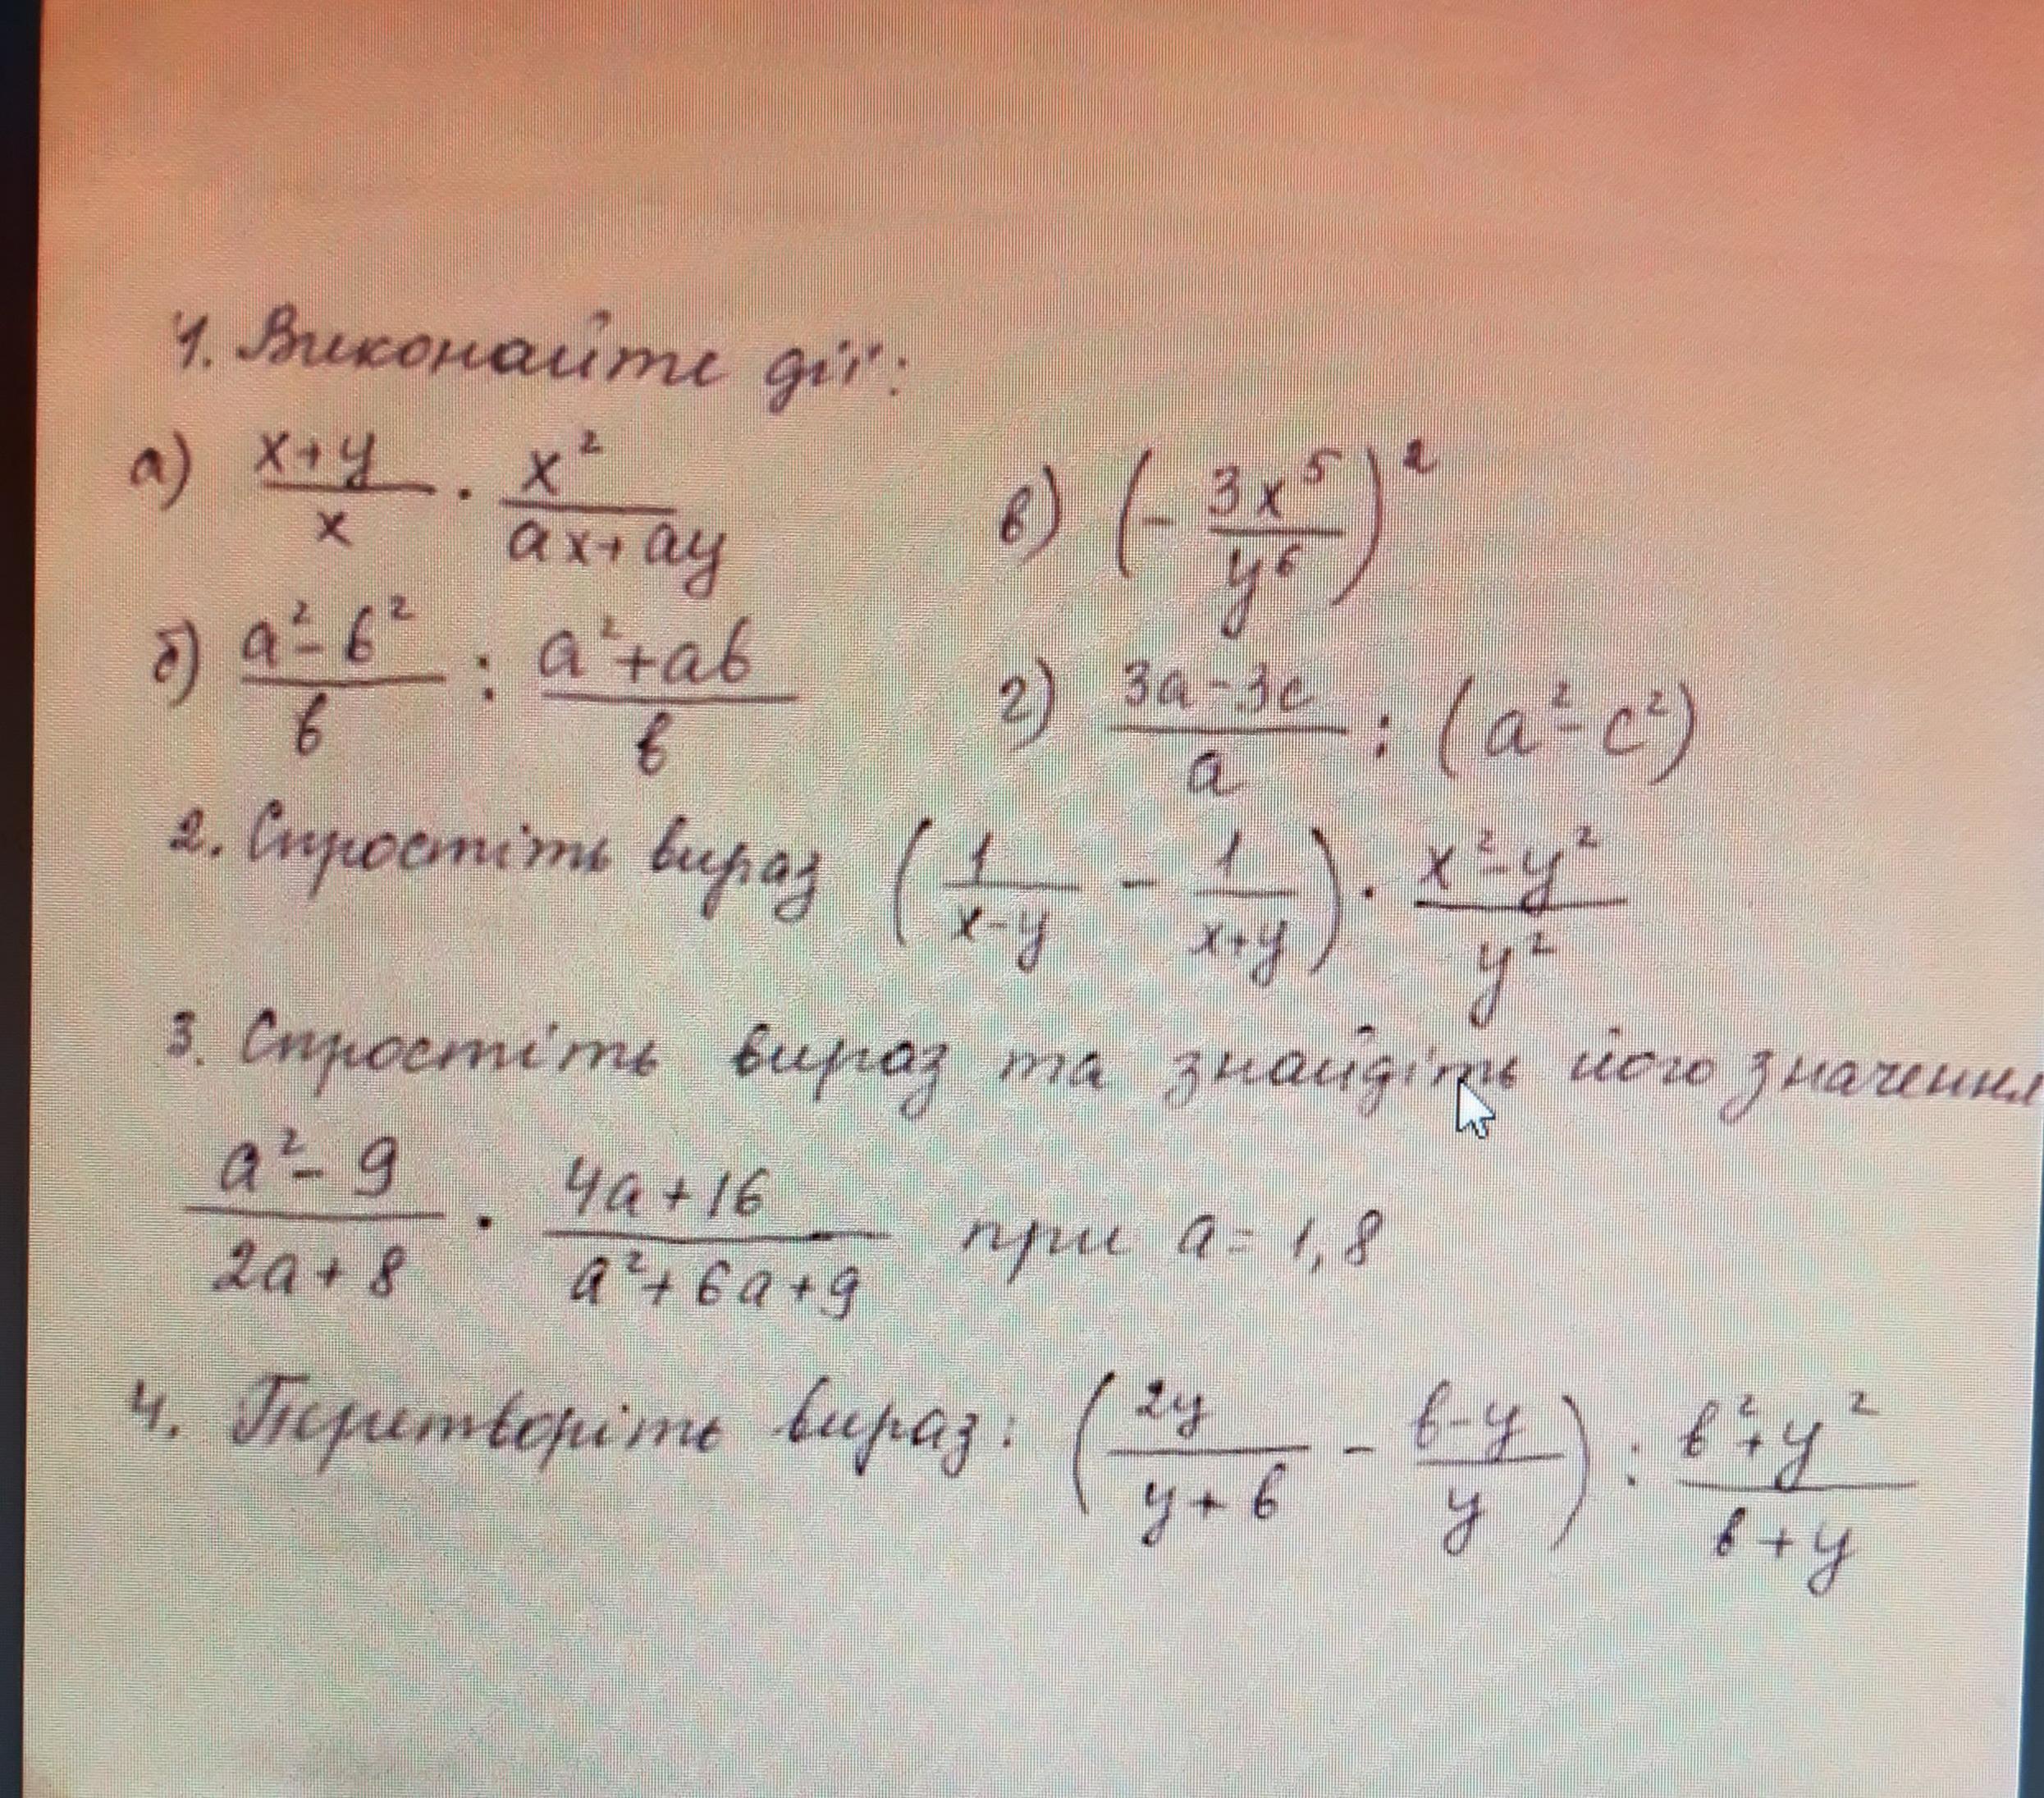 1. Виконайте дії:
а) (x+y)/x · x²/(ax+ay)
в) (- 3x⁵/y⁶)²
б) (a²-b²)/b : (a²+ab)/b
г) (3a-3c)/a : (a²-c²)
2. Спростіть вираз (1/(x-y) - 1/(x+y)) · (x²-y²)/y²
3. Спростіть вираз та знайдіть його значення
(a²-9)/(2a+8) · (4a+16)/(a²+6a+9) при a=1,8
4. Перетворіть вираз: (2y/(y+b) - (b-y)/y) : (b²+y²)/(b+y)